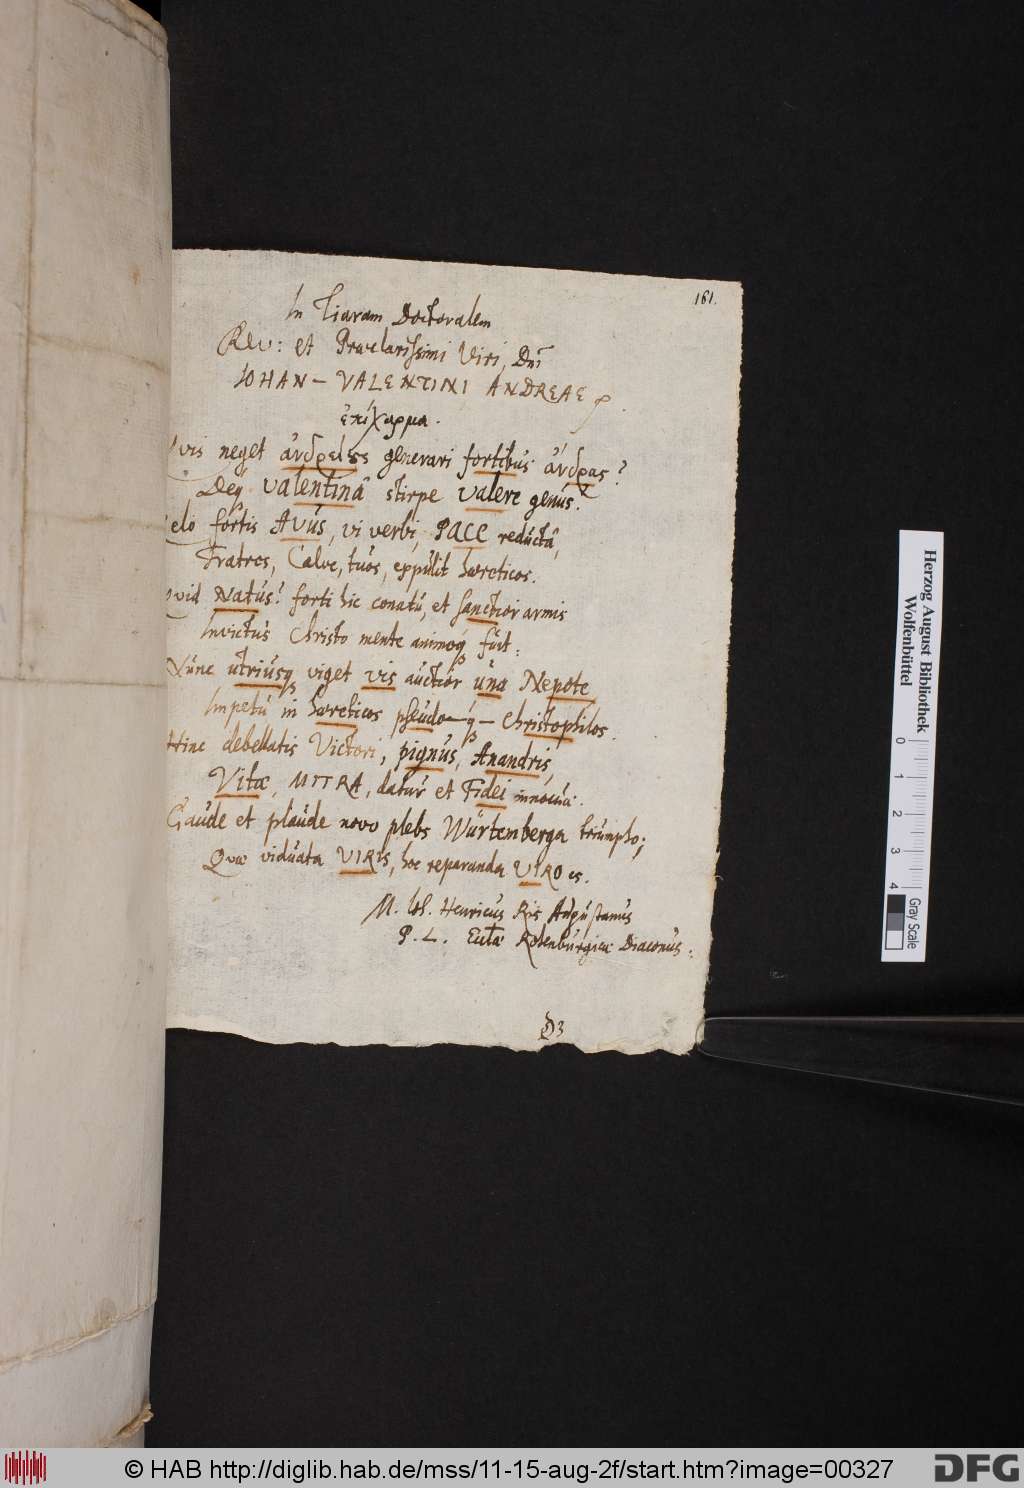 161.
In Tiaram Doctoralem
Rev: et Præclarissimi Viri, Dnī
IOHAN– VALENTINI ANDREAE
ἐπίχαρμα.
vis neget ἀνδρείες generari fortibus ἄνδρας?
Deq̃ valentinâ stirpe valere genus?
elo fortis AVUS, vi verbi, PACE reductâ,
Fratres, Calve, tuos, expulit hæreticos.
vid Natus? forti hic conatu, et sanctior armis
Invictus Christo mente animoq́ fuit:
Nunc utriusq viget vis auctior una Nepote
Impetu in hæreticos pseudo–q́– Christophilos.
Hinc debellatis Victori, pignus, Anandris,
Vitæ, MITRA, datur et Fidei innocuæ.
Gaude et plaude novo plebs Würtenberga triumpho;
Quæ viduata VIRIS, hoc reparanda VIRO es.
M. Ioh. Henricus Ris Augustanus
P. L. Eccl̃æ Rotenburgicæ Diaconus:
D3
Herzog August Bibliothek
Wolfenbüttel
0 1 2 3 4
Gray Scale
© HAB http://diglib.hab.de/mss/11-15-aug-2f/start.htm?image=00327
DFG